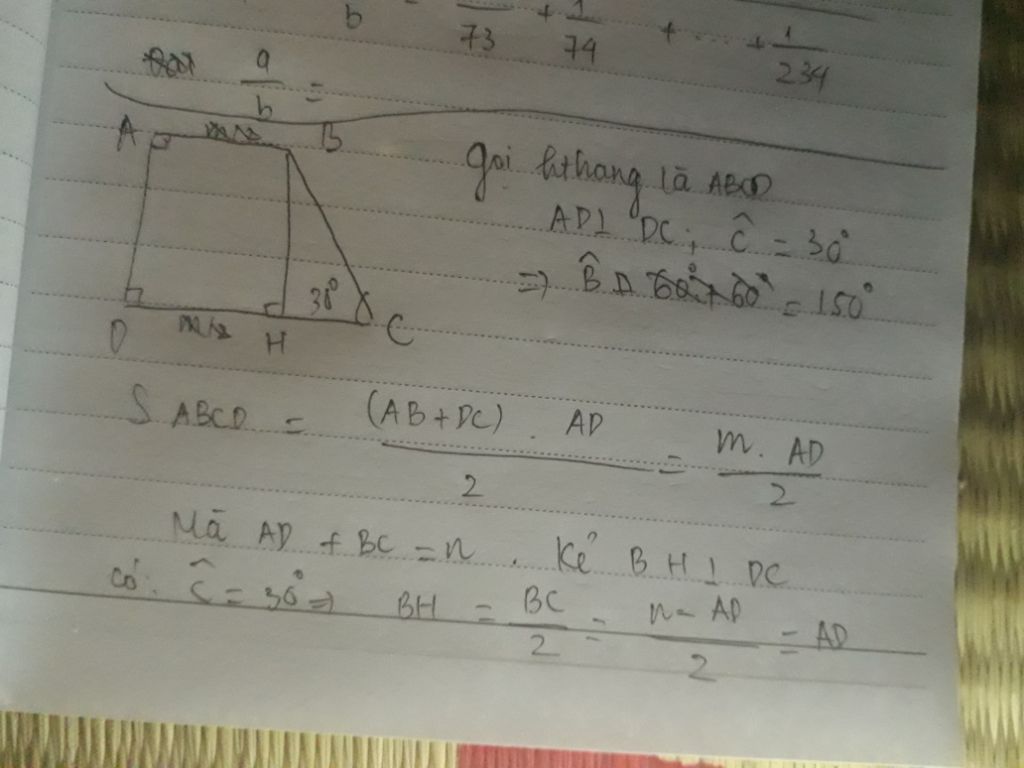 b = 73 + 1/74 + ... + 1/234
a/b =
A m/2 B
gọi hthang là ABCD
AD⊥ DC; Ĉ = 30°
=> B̂ = 150°
30°
D m/2 H C
S ABCD = (AB+DC) . AD / 2 = m. AD / 2
Mà AD + BC = n . Kẻ BH⊥ DC
có: Ĉ = 30° => BH = BC/2 = n - AD / 2 = AD